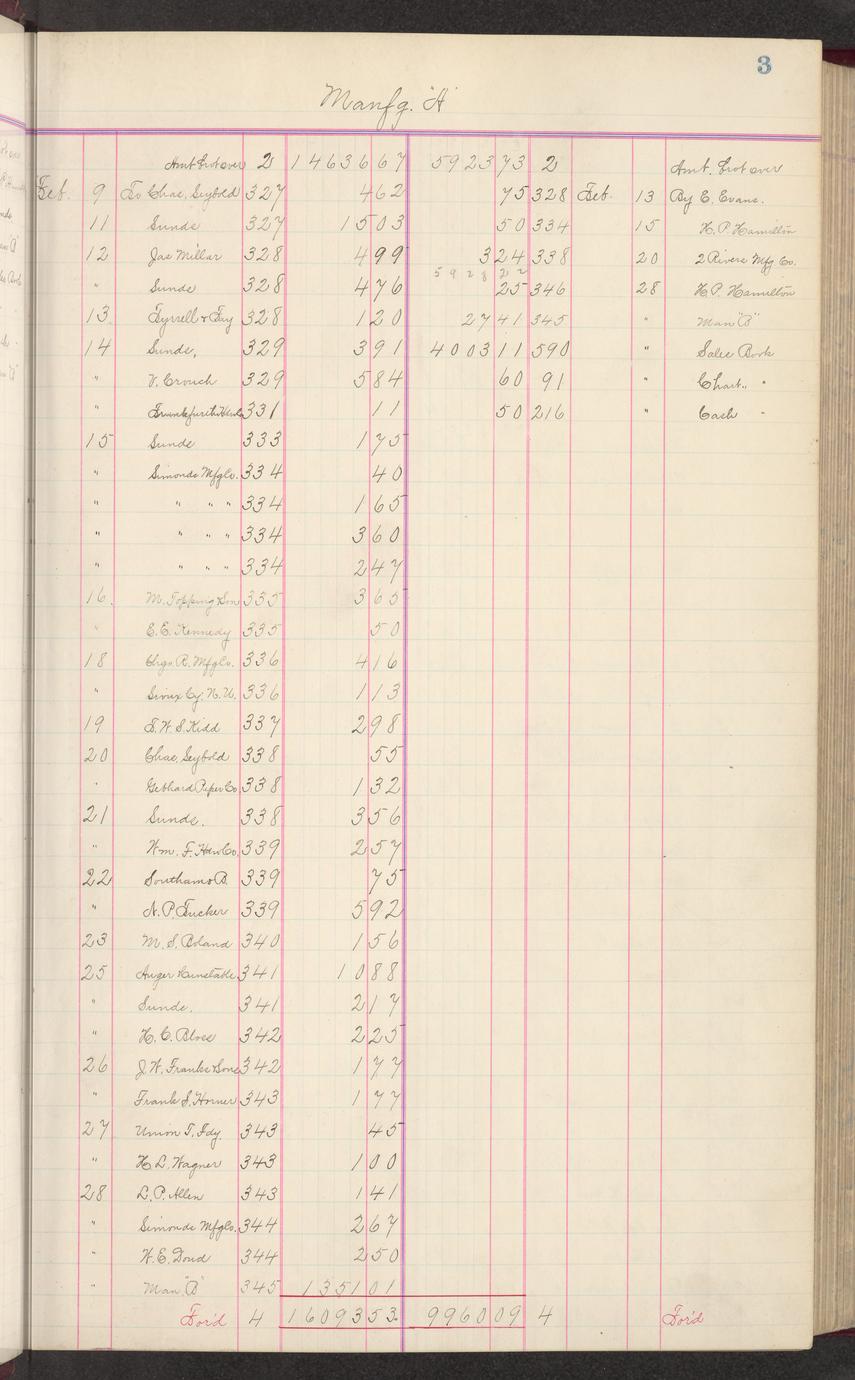 3
Manfg. "A"
Amt. brot over 2 14636 67 5923 73 2 Amt. brot over
Feb. 9 To Chas. Seybold 327 4 62 75 328 Feb. 13 By E. Evans.
11 Sunds 327 15 03 50 334 15 H. P. Hamilton
12 Jas Millar 328 4 99 3 24 338 20 2 Rivers Mfg Co.
5928 22
" Sunds 328 4 76 25 346 28 H. P. Hamilton
13 Tyrrell & Fay 328 1 20 27 41 345 " Man "B"
14 Sunds, 329 3 91 4003 11 590 " Sales Book
" V. Crouch 329 5 84 60 91 " Chart. "
" 331 11 50 216 " Cash "
15 Sunds 333 1 75
" Simonds Mfg Co. 334 40
" " " " 334 1 65
" " " " 334 3 60
" " " " 334 2 47
16. M. Topping & Son 335 3 65
" E. E. Kennedy 335 50
18 Chgo. R. Mfg Co. 336 4 16
" Sioux Cy. N. U. 336 1 13
19 S. W. S. Kidd 337 2 98
20 Chas. Seybold 338 55
" Gebhard Paper Co 338 1 32
21 Sunds. 338 3 56
" Wm. F. Hdw Co. 339 2 57
22 Southams B. 339 75
" N. P. Tucker 339 5 92
23 M. S. Boland 340 1 56
25 Auger & Constable 341 10 88
" Sunds. 341 2 17
" H. C. Bloss 342 2 25
26 J. W. Franks & Sons 342 1 77
" Frank S. Horner 343 1 77
27 Union T. Fdy. 343 45
" H. L. Wagner 343 1 00
28 L. P. Allen 343 1 41
" Simonds Mfg Co. 344 2 67
" W. E. Doud 344 2 50
" Man. "B" 345 1351 01
For'd 4 16093 53 9960 09 4 For'd